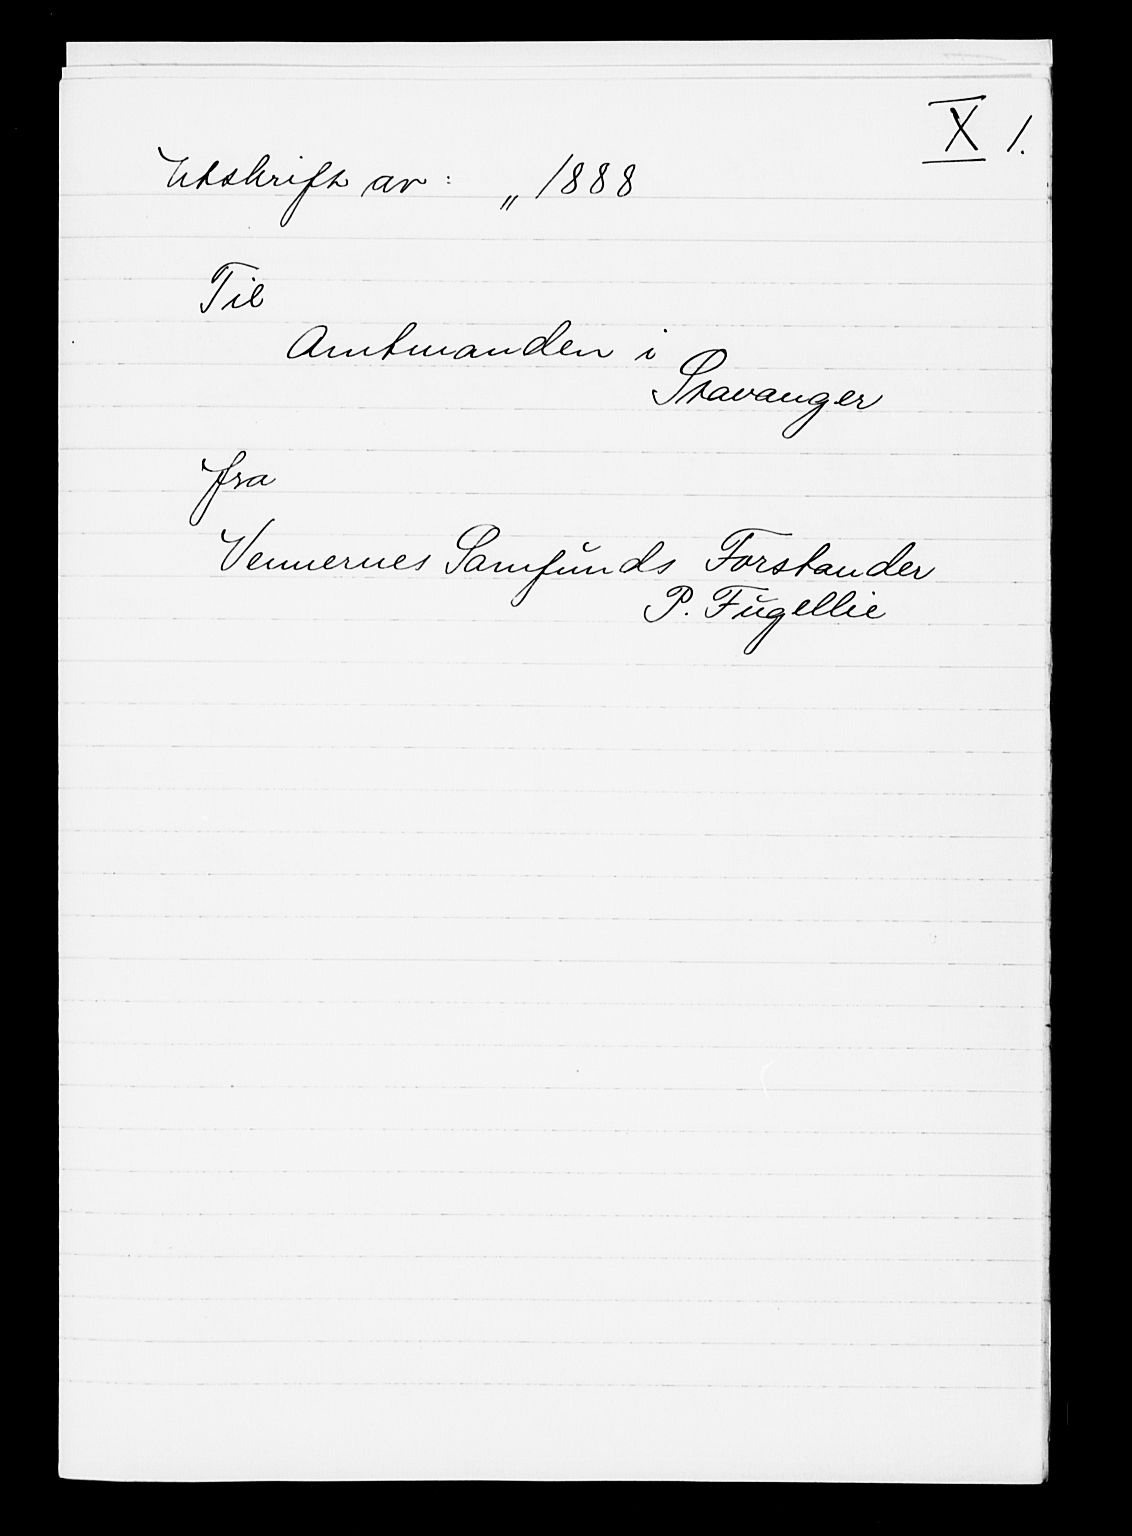 X 1.
Utskrift av: " 1888
Til
Amtmanden i
Stavanger
fra
Vennernes Samfunds Forstander
P. Fugellie